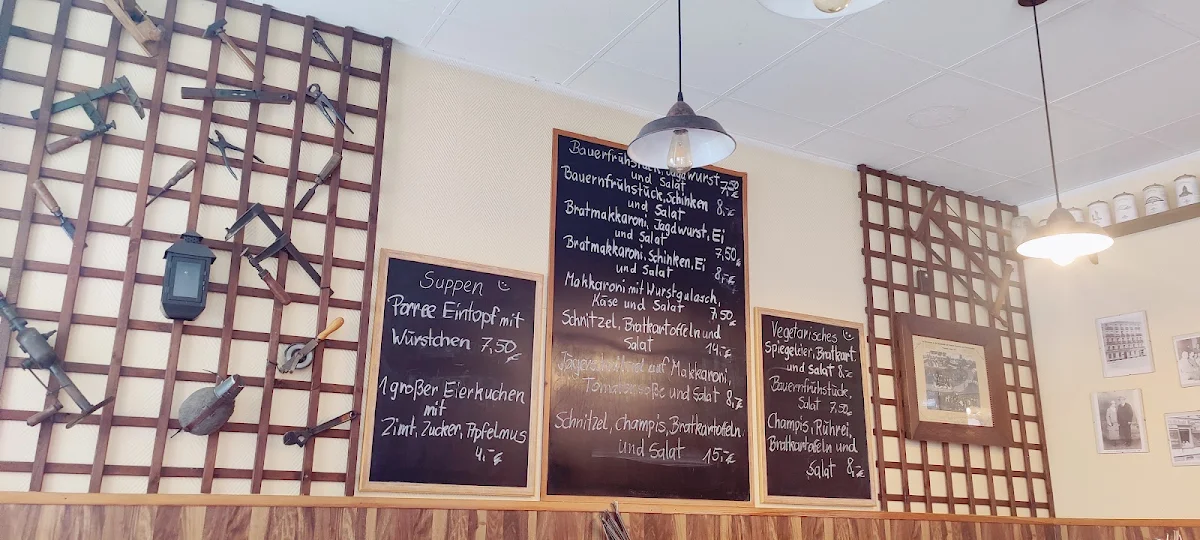 Suppen
Porree Eintopf mit
Würstchen 7,50 €
1 großer Eierkuchen
mit
Zimt, Zucker, Apfelmus
4,- €
Bauerfrühstück, Jagdwurst
und Salat 7,50
Bauernfrühstück, Schinken
und Salat 8,- €
Bratmakkaroni, Jagdwurst, Ei
und Salat 7,50 €
Bratmakkaroni, Schinken, Ei
und Salat 8,- €
Makkaroni mit Wurstgulasch,
Käse und Salat 7,50 €
Schnitzel, Bratkartoffeln und
Salat 14,- €
Jägerschnitzel auf Makkaroni,
Tomatensoße und Salat 8,- €
Schnitzel, Champis, Bratkartoffeln
und Salat 15,- €
Vegetarisches
Spiegeleier, Bratkart.
und Salat 8,- €
Bauernfrühstück,
Salat 7,50 €
Champis, Rührei,
Bratkartofeln und
Salat 8,- €